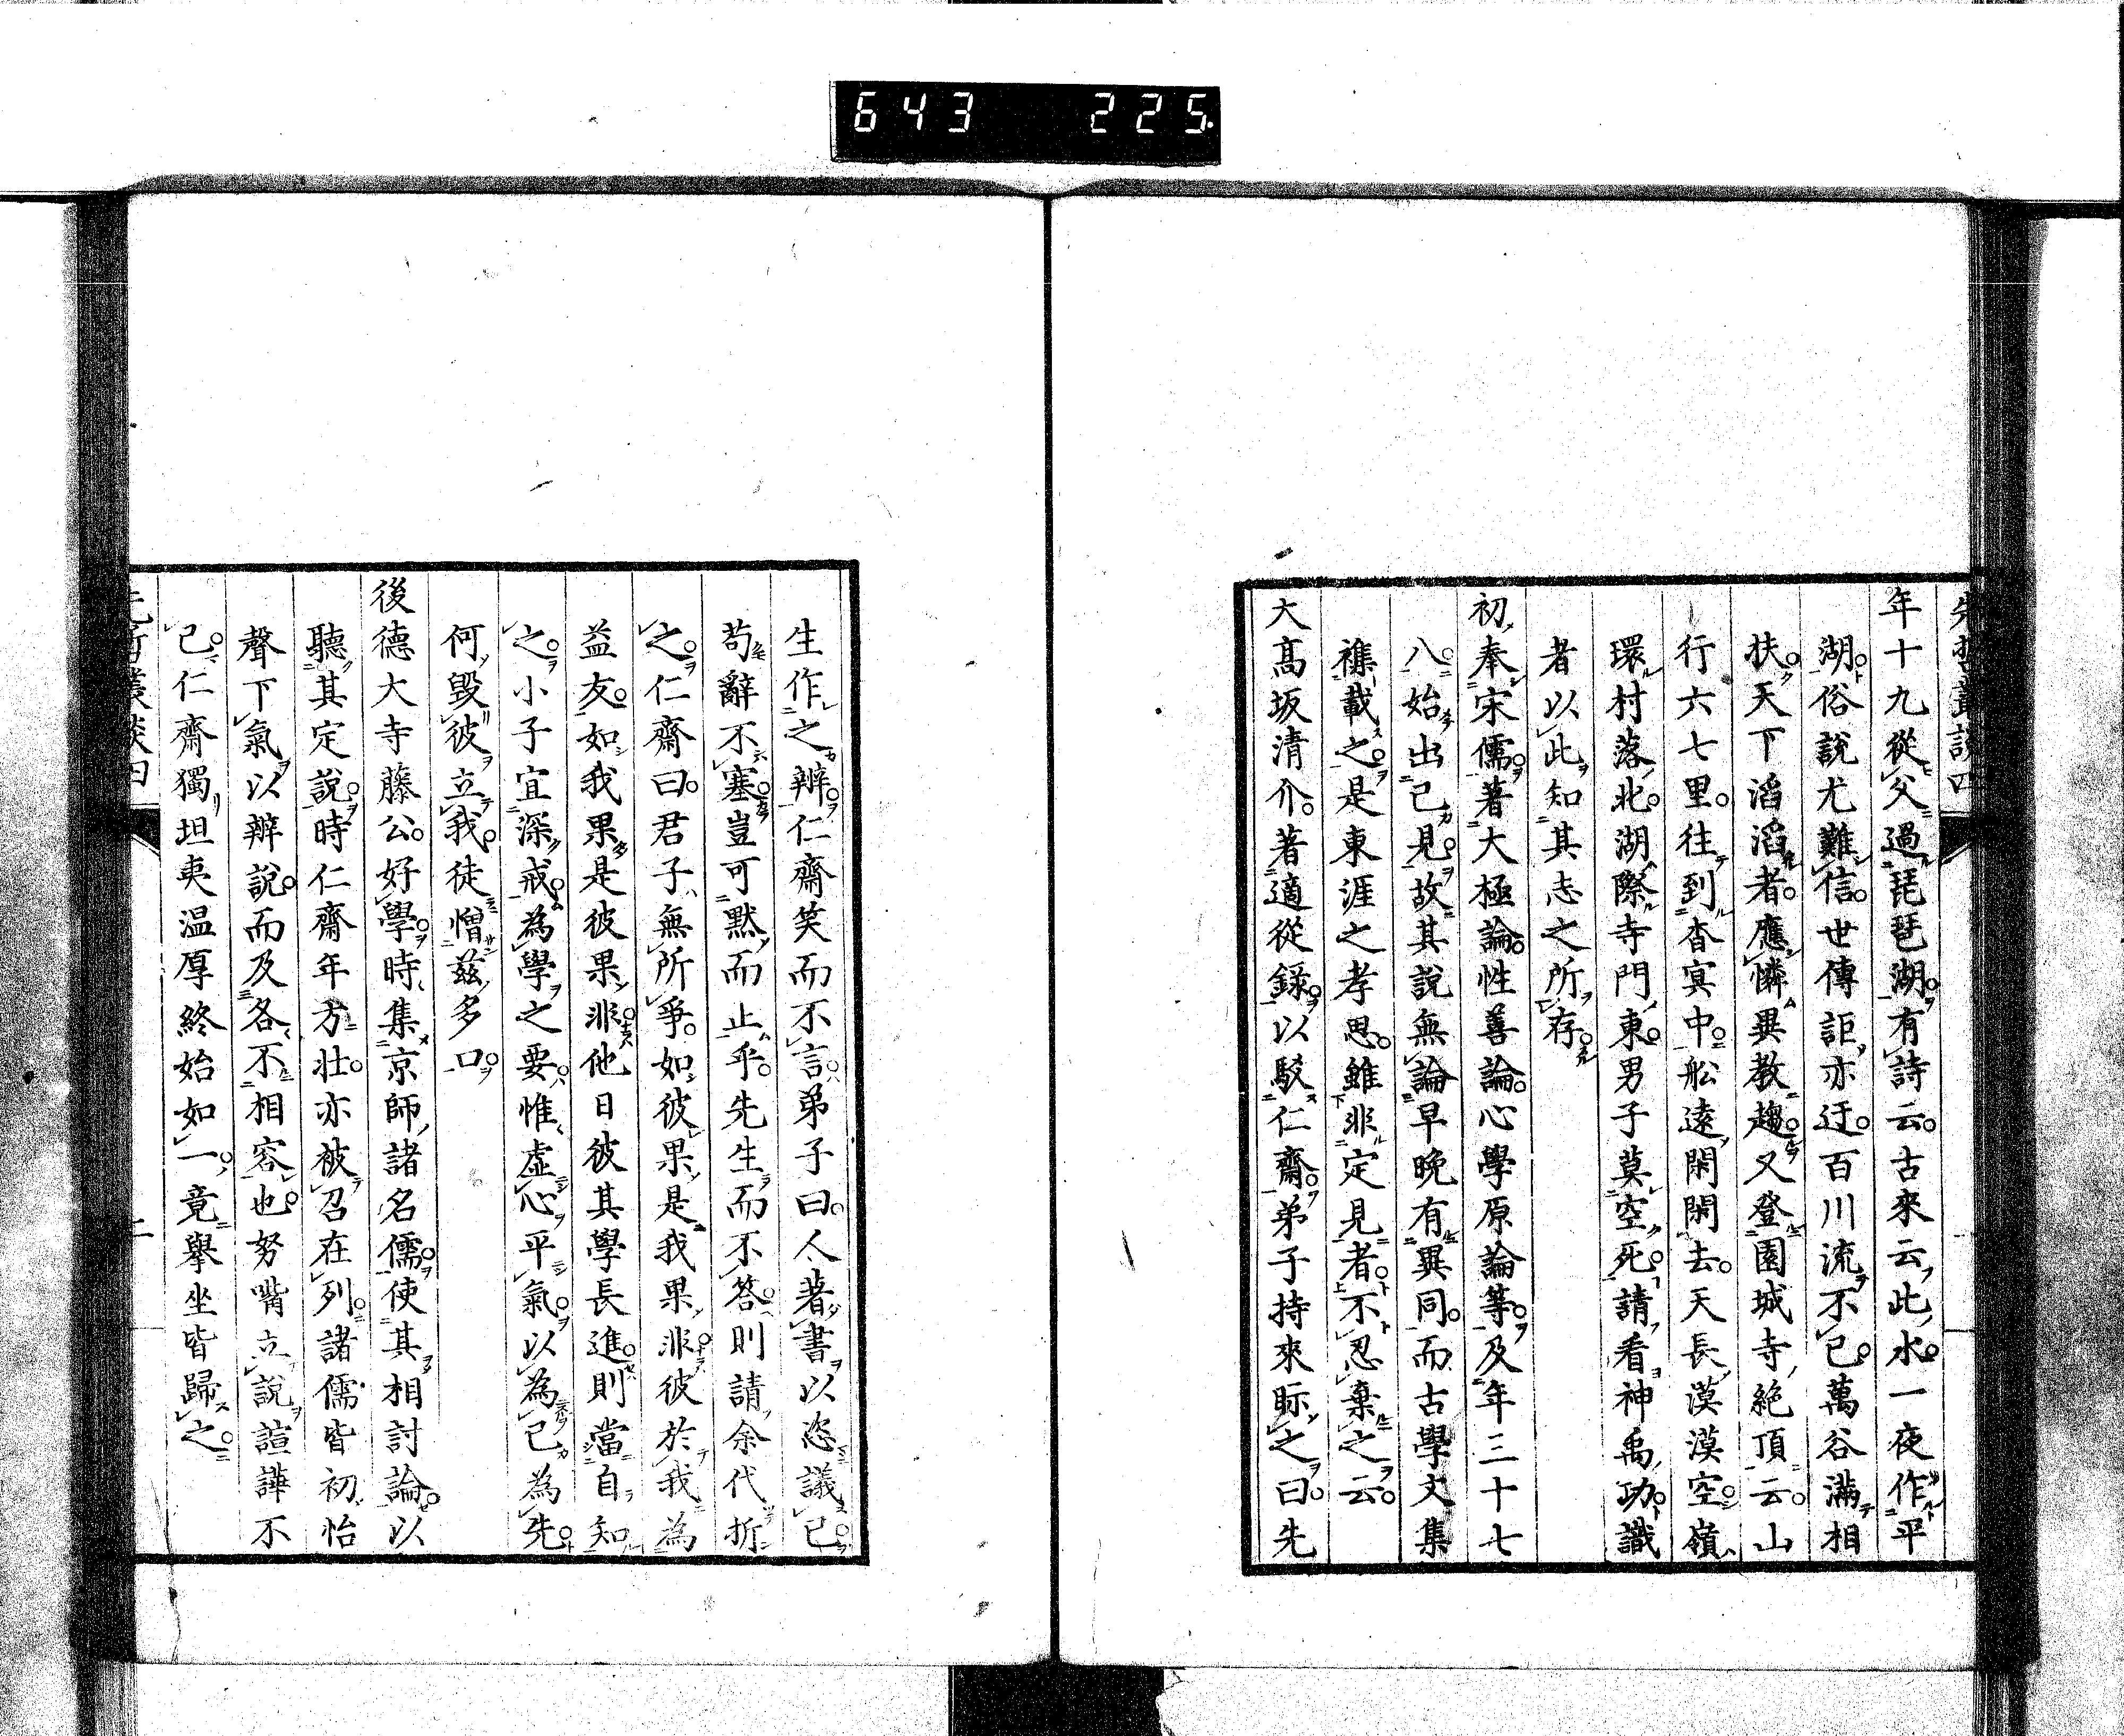 643 225
先哲叢談四
年十九從父過琵琶湖有詩云古來云此水一夜作平
湖俗說尤難信世傳詎亦迂百川流不已萬谷滿相
扶天下滔滔者應憐異教趨又登園城寺絶頂云山
行六七里往到杳冥中船遠閑閑去天長漠漠空嶺
環村落北湖際寺門東男子莫空死請看神禹功識
者以此知其志之所存
初奉宋儒著大極論性善論心學原論等及年三十七
八始出己見故其說無論早晩有異同而古學文集
襍載之是東涯之孝思雖非定見者不忍棄之云
大髙坂清介著適從録以駁仁齋弟子持來眎之曰先
生作之辨仁齋笑而不言弟子曰人著書以恣議己
苟辭不塞豈可黙而止乎先生而不答則請余代折
之仁齋曰君子無所爭如彼果是我果非彼於我為
益友如我果是彼果非他日彼其學長進則當自知
之小子宜深戒為學之要惟虛心平氣以為己為先
何毀彼立我徒憎茲多口
後德大寺藤公好學時集京師諸名儒使其相討論以
聽其定說時仁齋年方壯亦被召在列諸儒皆初怡
聲下氣以辨說而及各不相容也努嘴立說諠譁不
已仁齋獨坦夷温厚終始如一竟擧坐皆歸之
先哲叢談四
二